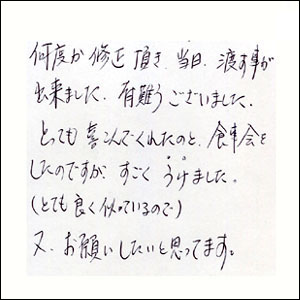 何度か修正頂き、当日、渡す事が
出来ました。有難うございました。
とっても喜こんでくれたのと、食事会を
したのですが、すごくうけました。
(とても良く似っているので)
又、お願いしたいと思ってます。